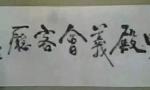 殿義會客廳